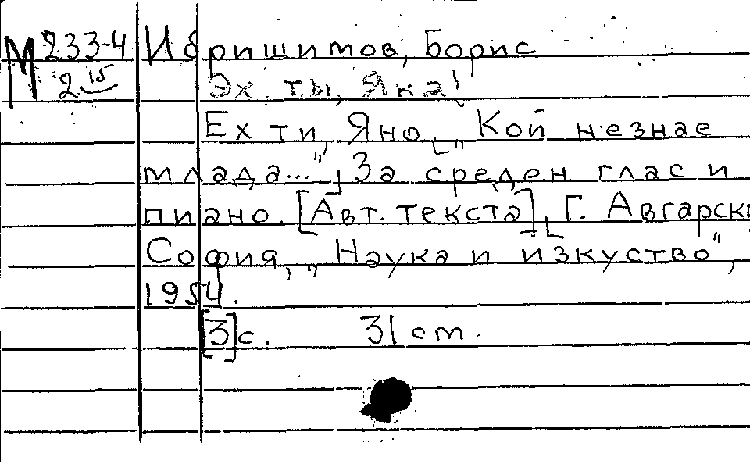 М 233-4 Ибришимов, Борис
2.15 Эх, ты, Яна!
Ех ти, Яно, „Кой незнае
млада...“, За среден глас и
пиано. [Авт. текста], Г. Авгарски
София, „Наука и изкуство“,
1954.
[3]с. 31 cm.